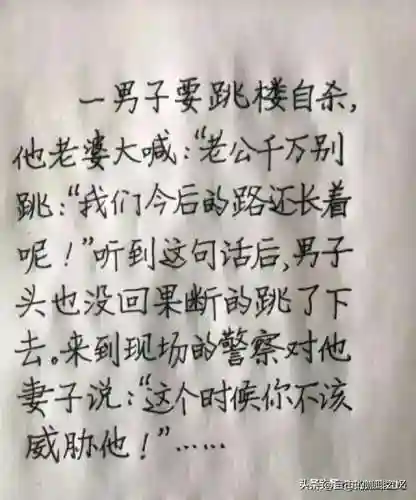 一男子要跳楼自杀，
他老婆大喊：“老公千万别
跳：“我们今后的路还长着
呢！”听到这句话后，男子
头也没回果断的跳了下
去。来到现场的警察对他
妻子说：“这个时候你不该
威胁他！”……